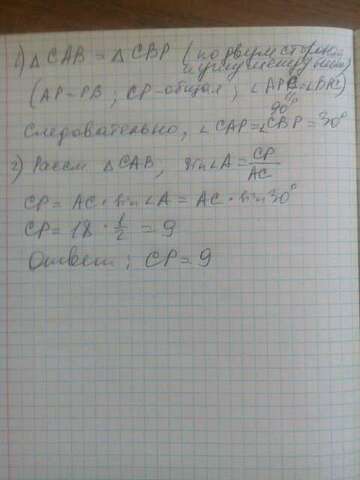 1) △CAB = △CBP (по двум сторонам
и углу между ними)
(AP=PB; CP-общая; ∠APC=∠BPC
90°
Следовательно, ∠CAP=∠CBP=30°
2) Рассм △CAB, sin∠A = CP/AC
CP = AC · sin∠A = AC · sin30°
CP = 18 · 1/2 = 9
Ответ: CP = 9